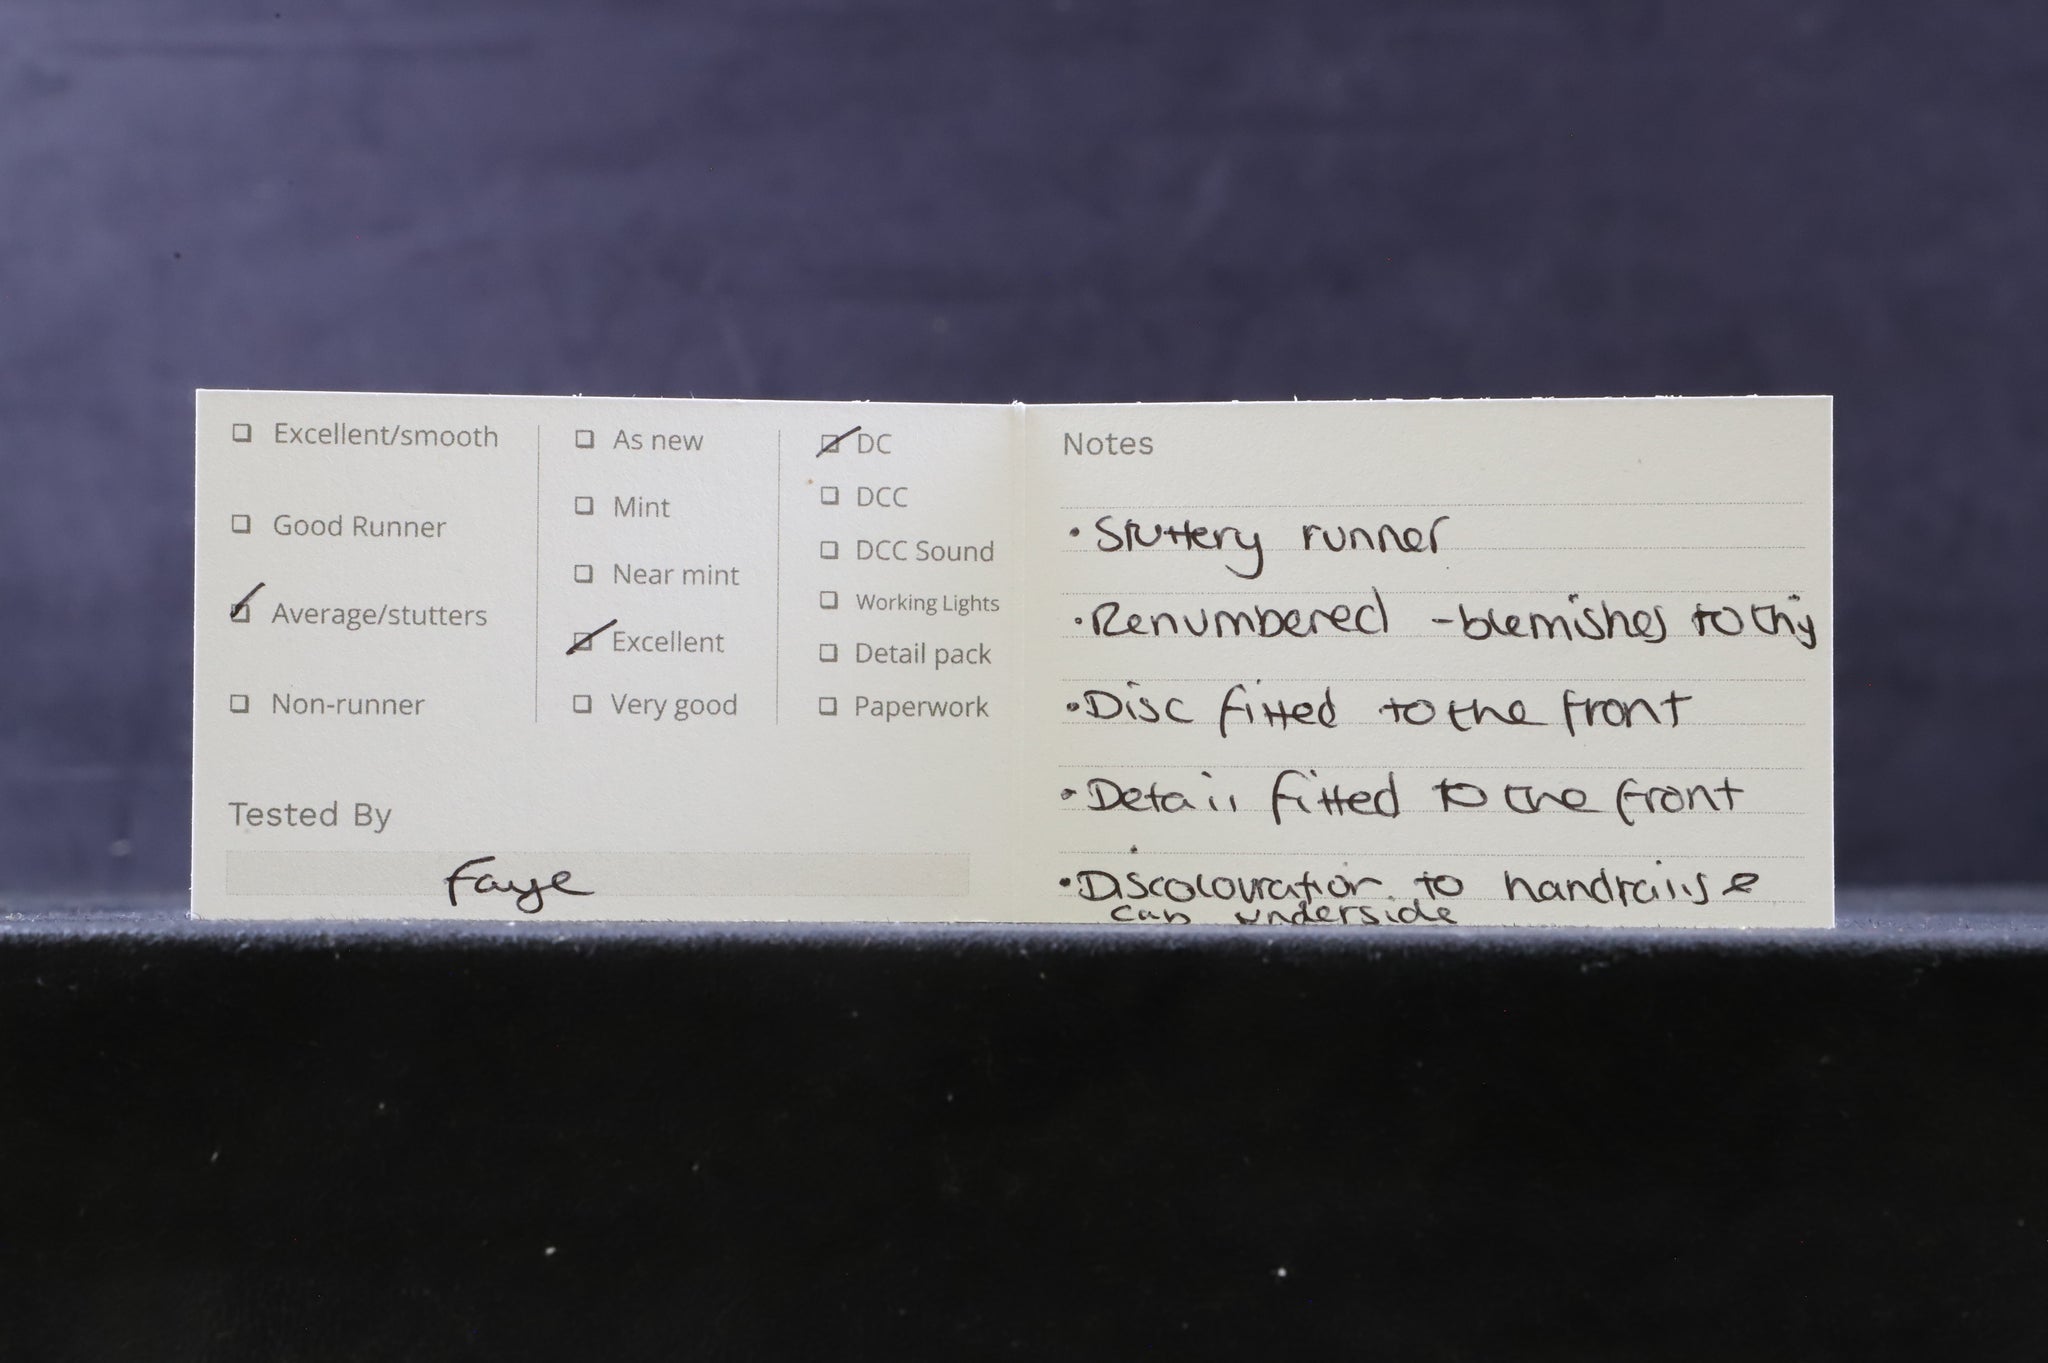 Excellent/smooth
Good Runner
Average/stutters
Non-runner
As new
Mint
Near mint
Excellent
Very good
DC
DCC
DCC Sound
Working Lights
Detail pack
Paperwork
Tested By
Faye
Notes
• Stuttery runner
• Renumbered - blemishes to this
• Disc fitted to the front
• Detail fitted to the front
• Discolouration to handrails &
cab underside